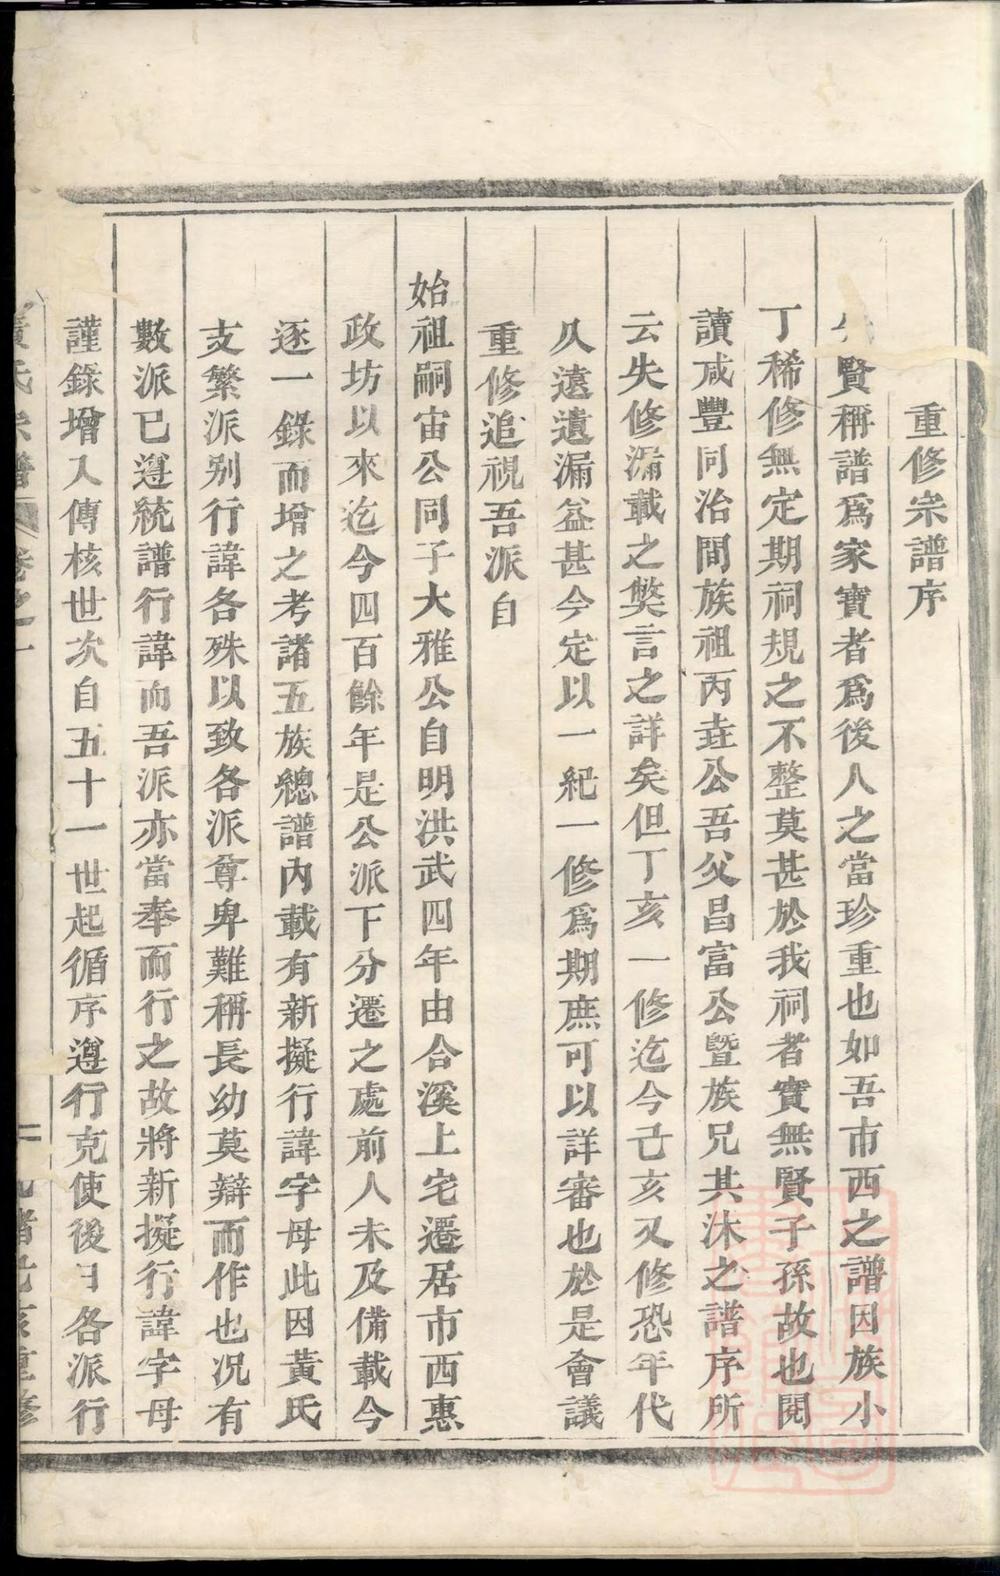 重修宗譜序
賢稱譜爲家寶者爲後人之當珍重也如吾市西之譜因族小
丁稀修無定期祠規之不整莫甚於我祠者實無賢子孫故也閱
讀咸豐同治間族祖丙垚公吾父昌富公暨族兄其沐之譜序所
云失修漏載之獘言之詳矣但丁亥一修迄今己亥又修恐年代
久遠遺漏益甚今定以一紀一修爲期庶可以詳審也於是會議
重修追視吾派自
始祖嗣宙公同子大雅公自明洪武四年由合溪上宅遷居市西惠
政坊以來迄今四百餘年是公派下分遷之處前人未及備載今
逐一錄而增之考諸五族總譜內載有新擬行諱字母此因黃氏
支繁派別行諱各殊以致各派尊卑難稱長幼莫辯而作也况有
數派已遵統譜行諱而吾派亦當奉而行之故將新擬行諱字母
謹錄增入傳核世次自五十一世起循序遵行克使後日各派行
黃氏宗譜 卷之一 亥重修